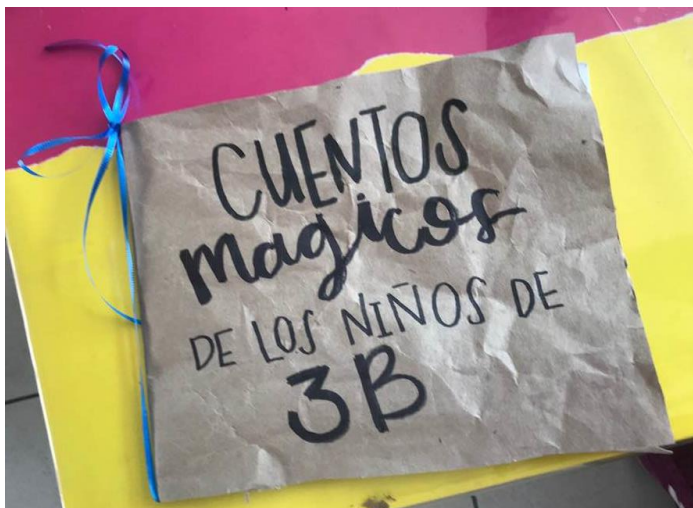 CUENTOS
magicos
DE LOS NIÑOS DE
3B